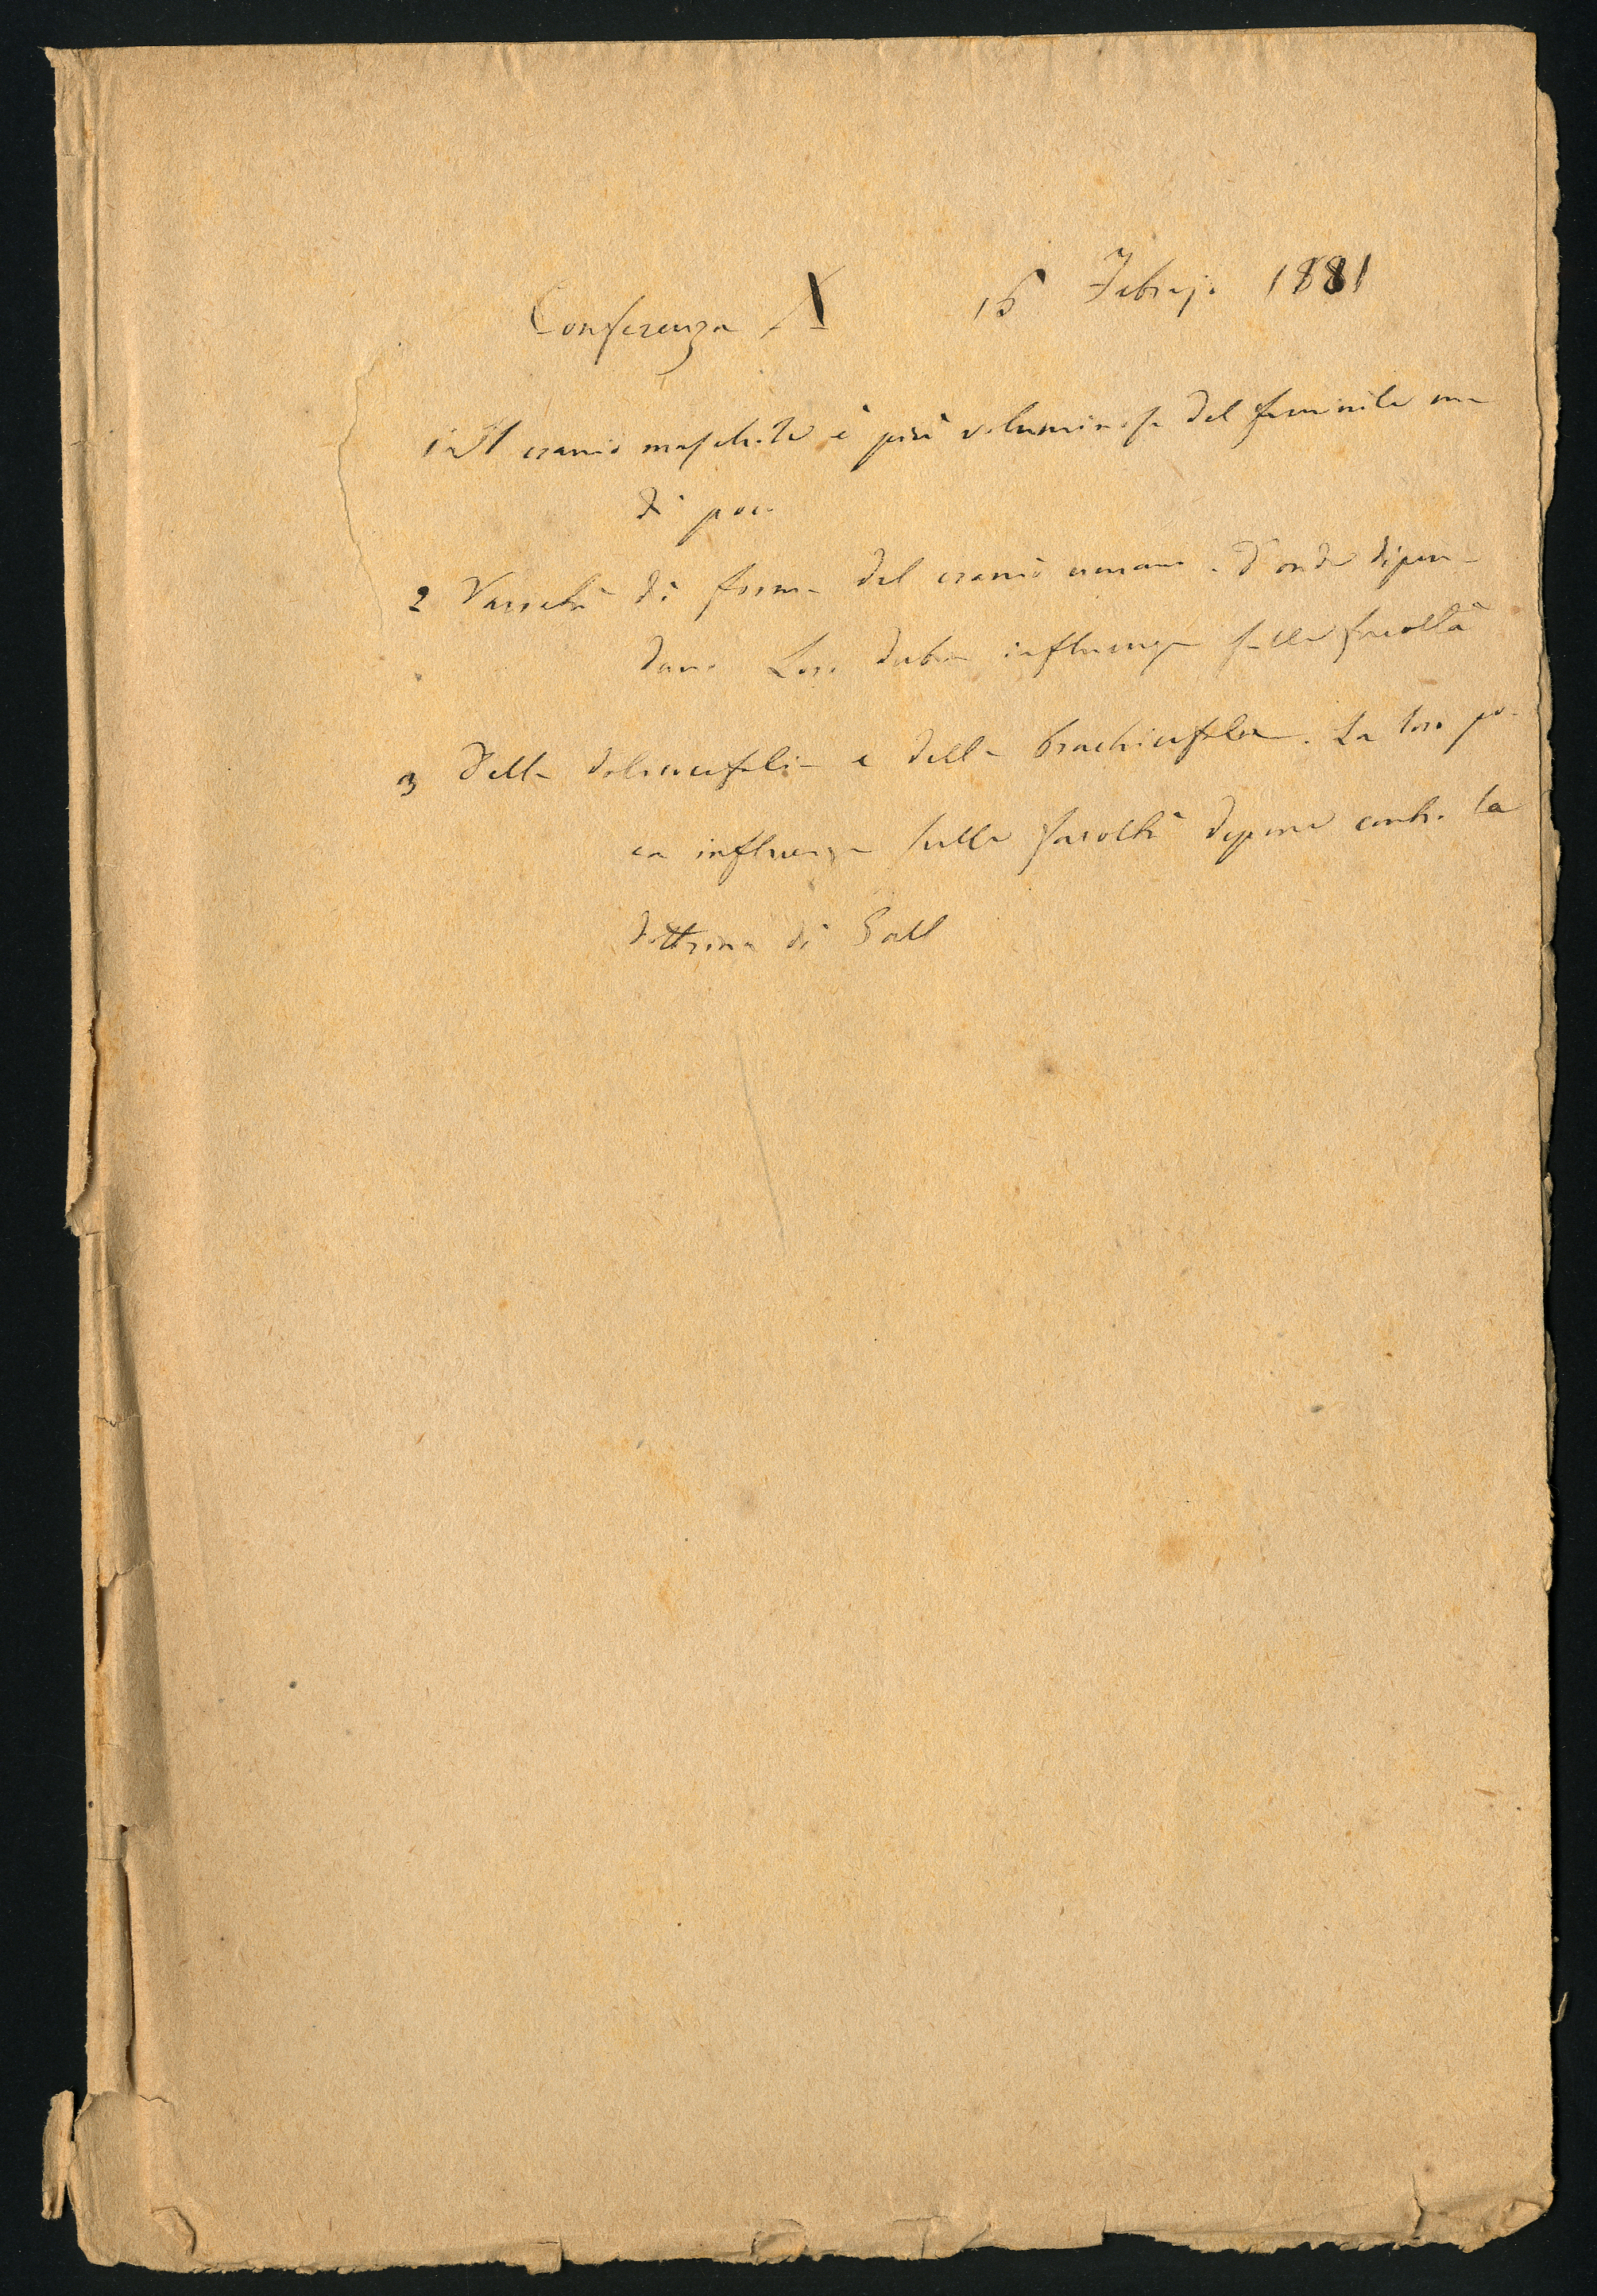 Conferenza X 15 Febrajo 1881
1 Il cranio maschile è più voluminoso del feminile ma
di poco
2 Varietà di forma del cranio umano. D'onde dipen-
dano. Loro dubia influenza sulle facoltà
3 Della dolicocefalia e della brachicefalia. La loro po-
ca influenza sulle facoltà depone contro la
dottrina di Gall